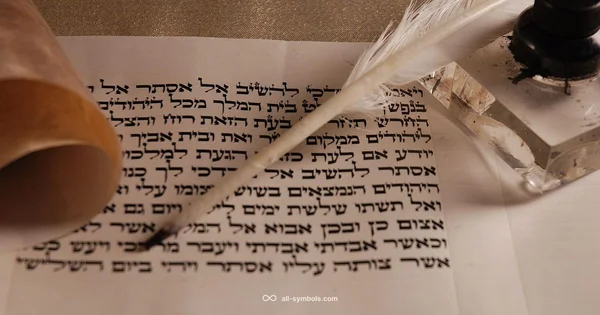 להשיב אל אסתר אל
בית המלך מכל היהודים
בעת הזאת רוח
ליהודים ממקום ואת ובית אביך
יודע אם לעת הגעת למלכות
אסתר להשיב אל מרדכי לך
היהודים הנמצאים בשושן וצומו עלי
ואל תשתו שלשת ימים ויום גם
אצום כן ובכן אבוא אל המלך אשר
וכאשר אבדתי אבדתי ויעבר מרדכי ויעש
אשר צותה עליו אסתר ויהי ביום השלישי
all-symbols.com